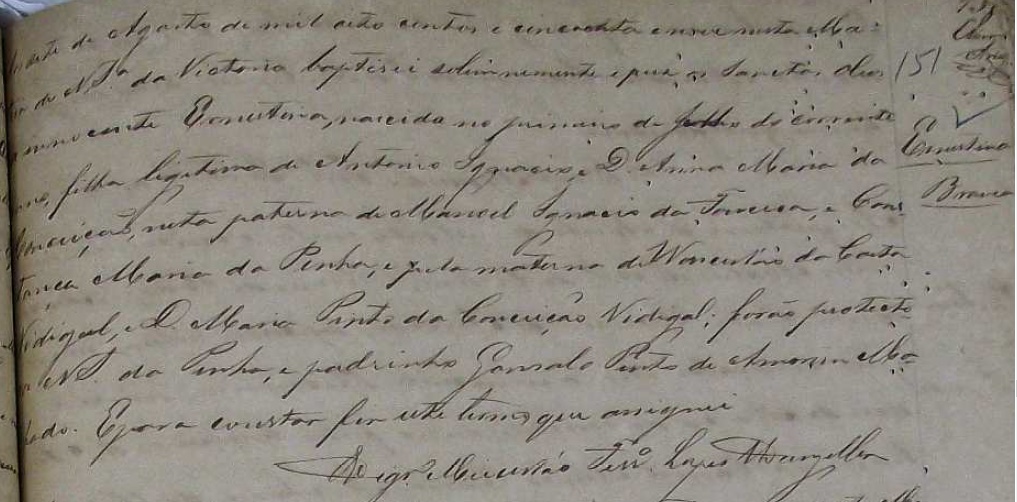 de Agosto de mil oito centos e cincoenta e nove nesta Ma=
de N. S.ª da Victoria baptisei solemnemente e puz os Sanctos oleos
innocente Ernestina, nascida no primeiro de Julho do corrente
anno, filha legitima de Antonio Ignacio, e D. Anna Maria da
Conceição, neta paterna de Manoel Ignacio da Fonceca, e Cons
tança Maria da Penha, e pela materna de Wencesláo da Costa
Vidigal, e D. Maria Pinto da Conceição Vidigal; forão protecto
ra N. S. da Penha, e padrinho Gonsalo Pinto de Amorim Ma
chado. E para constar fiz este termo que assignei
Vigr.º Miecesláo Ferr.ª Lopes Wanzeller
151
Ernestina
Branca